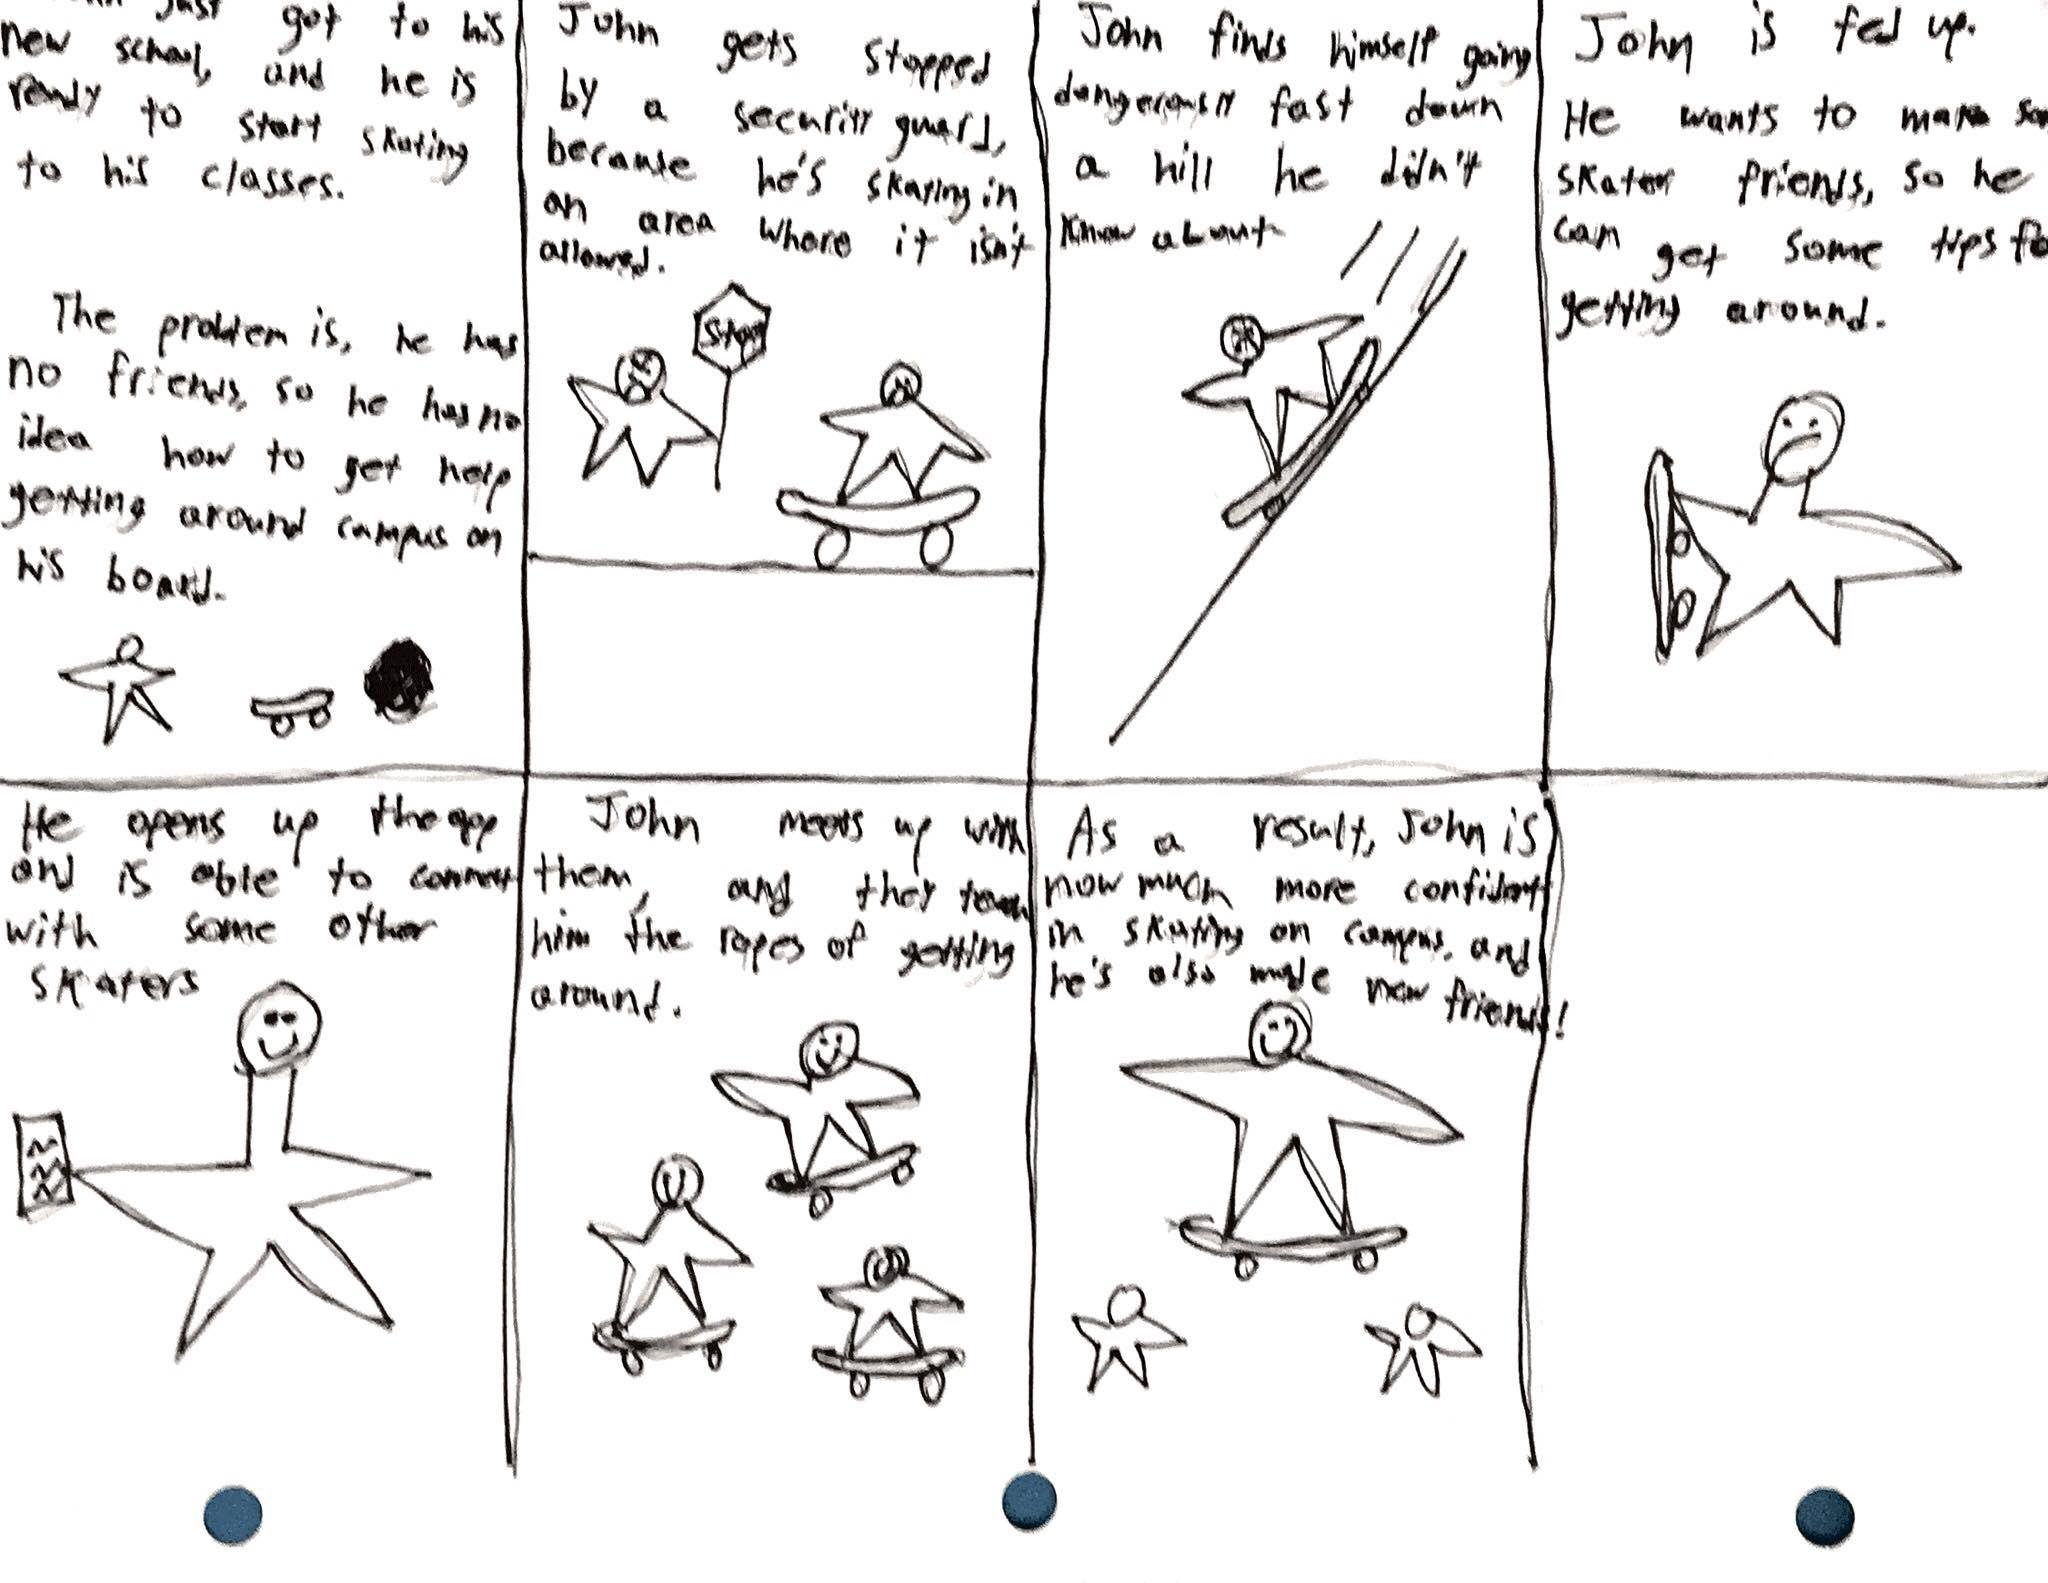 just got to his
new school, and he is
ready to start skating
to his classes.
The problem is, he has
no friends, so he has no
idea how to get help
getting around campus on
his board.
John gets stopped
by a security guard,
because he's skating in
an area where it isn't
allowed.
Stop
John finds himself going
dangerously fast down
a hill he didn't
know about
John is fed up.
He wants to make
skater friends, so he
can get some tips
getting around.
He opens up the app
and is able to connect
with some other
skaters
John meets up with
them, and they teach
him the ropes of getting
around.
As a result, John is
now much more confident
in skating on campus, and
he's also made new friends!